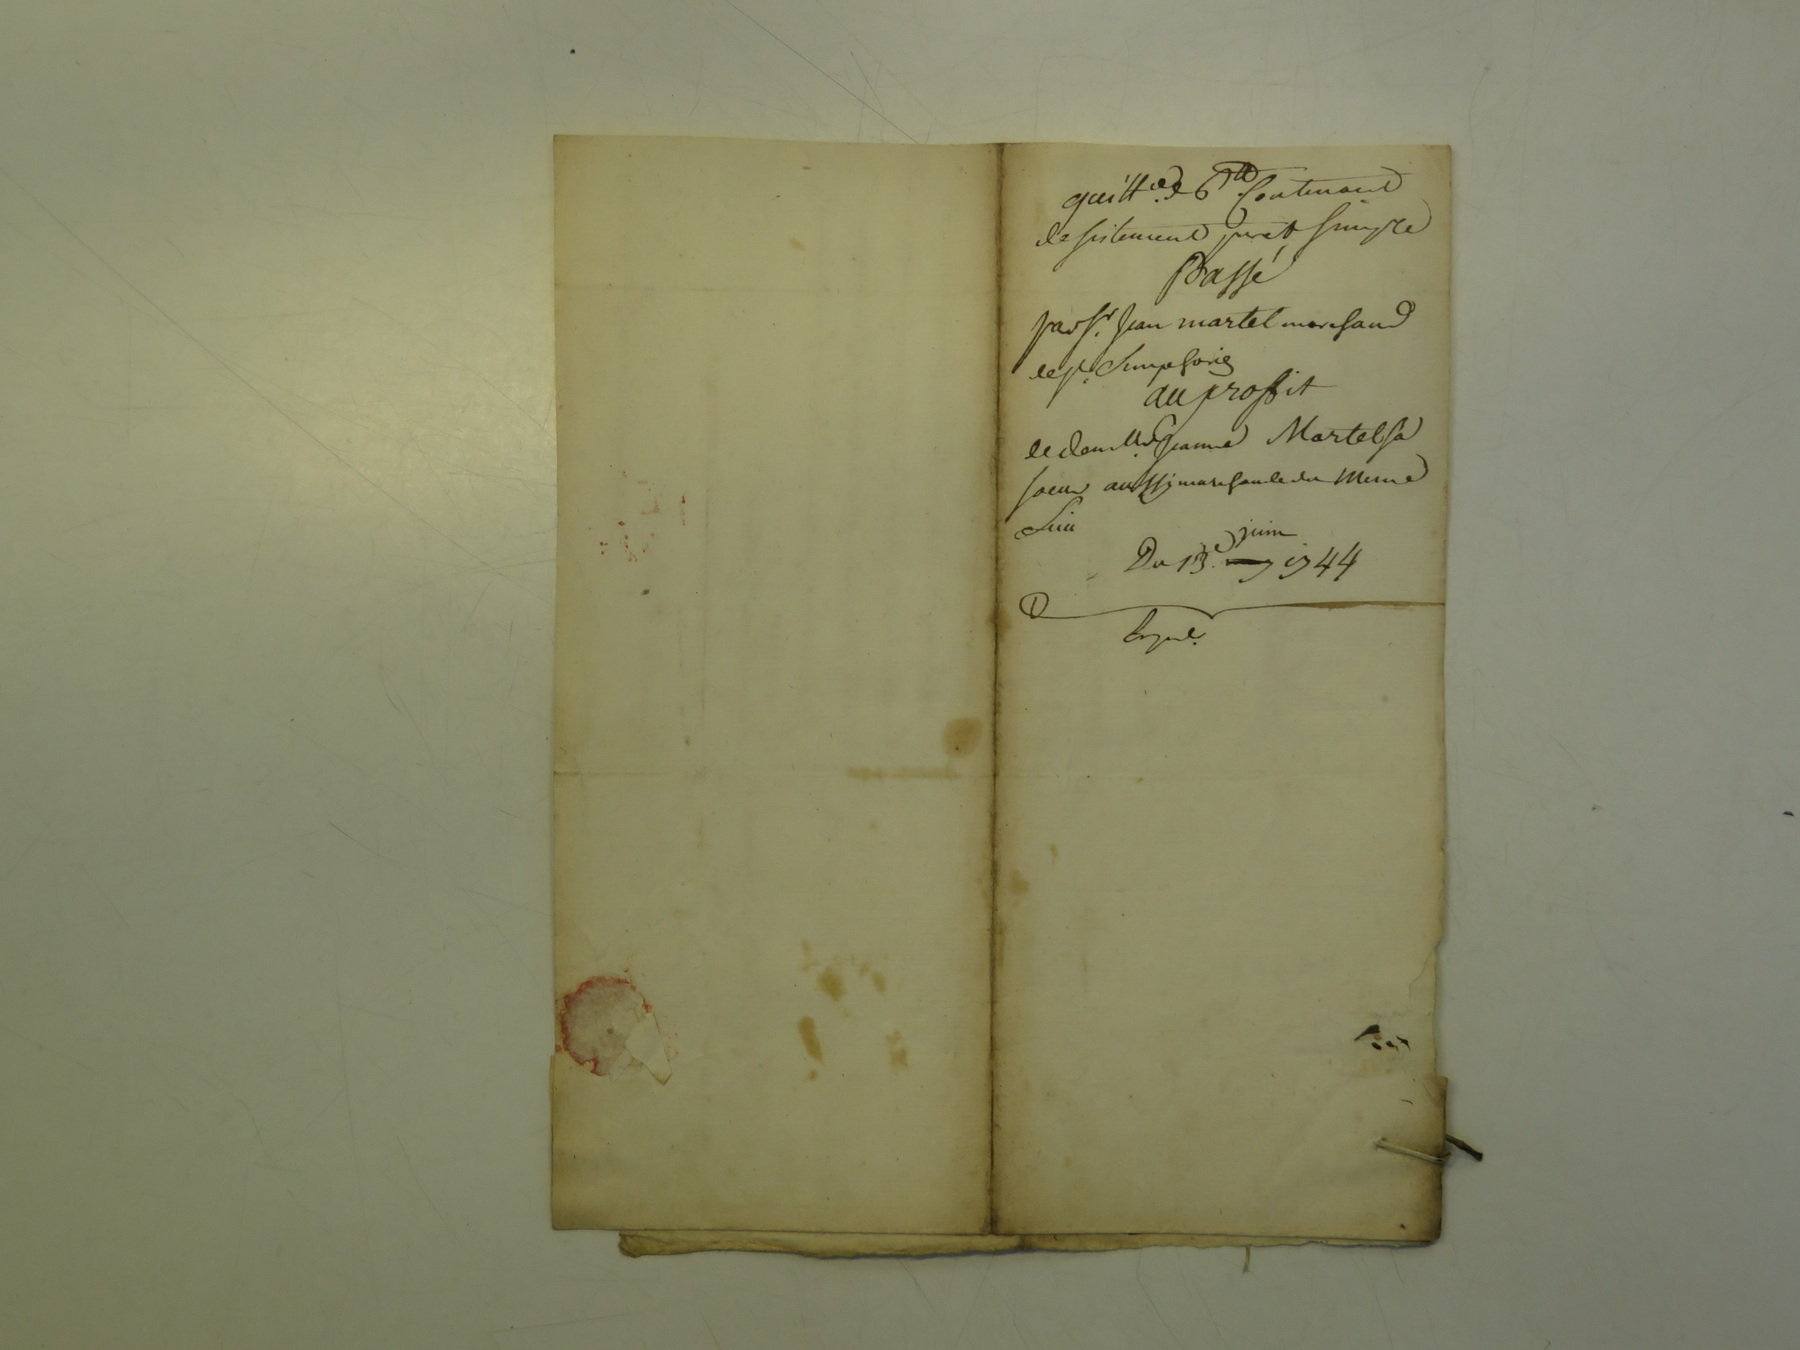 quitt.ce de 6tt Contenant
desistement pur et simple
Passé
par Sr. Jean martel marchand
de St. Simphorien
au proffit
de demlle. Jeanne Martel sa
soeur aussy marchande du meme
Lieu
juin
Du 13e. 1744
Exped.